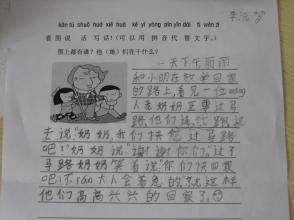 kàn tú shuō huà xiě huà kě yǐ yòng pīn yīn dài tì wén zì
看图说 话 写话）(可以用 拼音代 替文字。
图上都有谁？他(她)们在干什么？
一天下午丽丽
和小明在放学回家
的路上,看见一位
着奶奶正要过马
路,他们连忙跑过
去说"奶奶,我们扶您过马路
吧!"奶奶说"谢谢你们。"过了
马路奶奶笑着说"你们快回家
吧!不rán大人会着急的"就这样
他们高高兴兴的回家了。